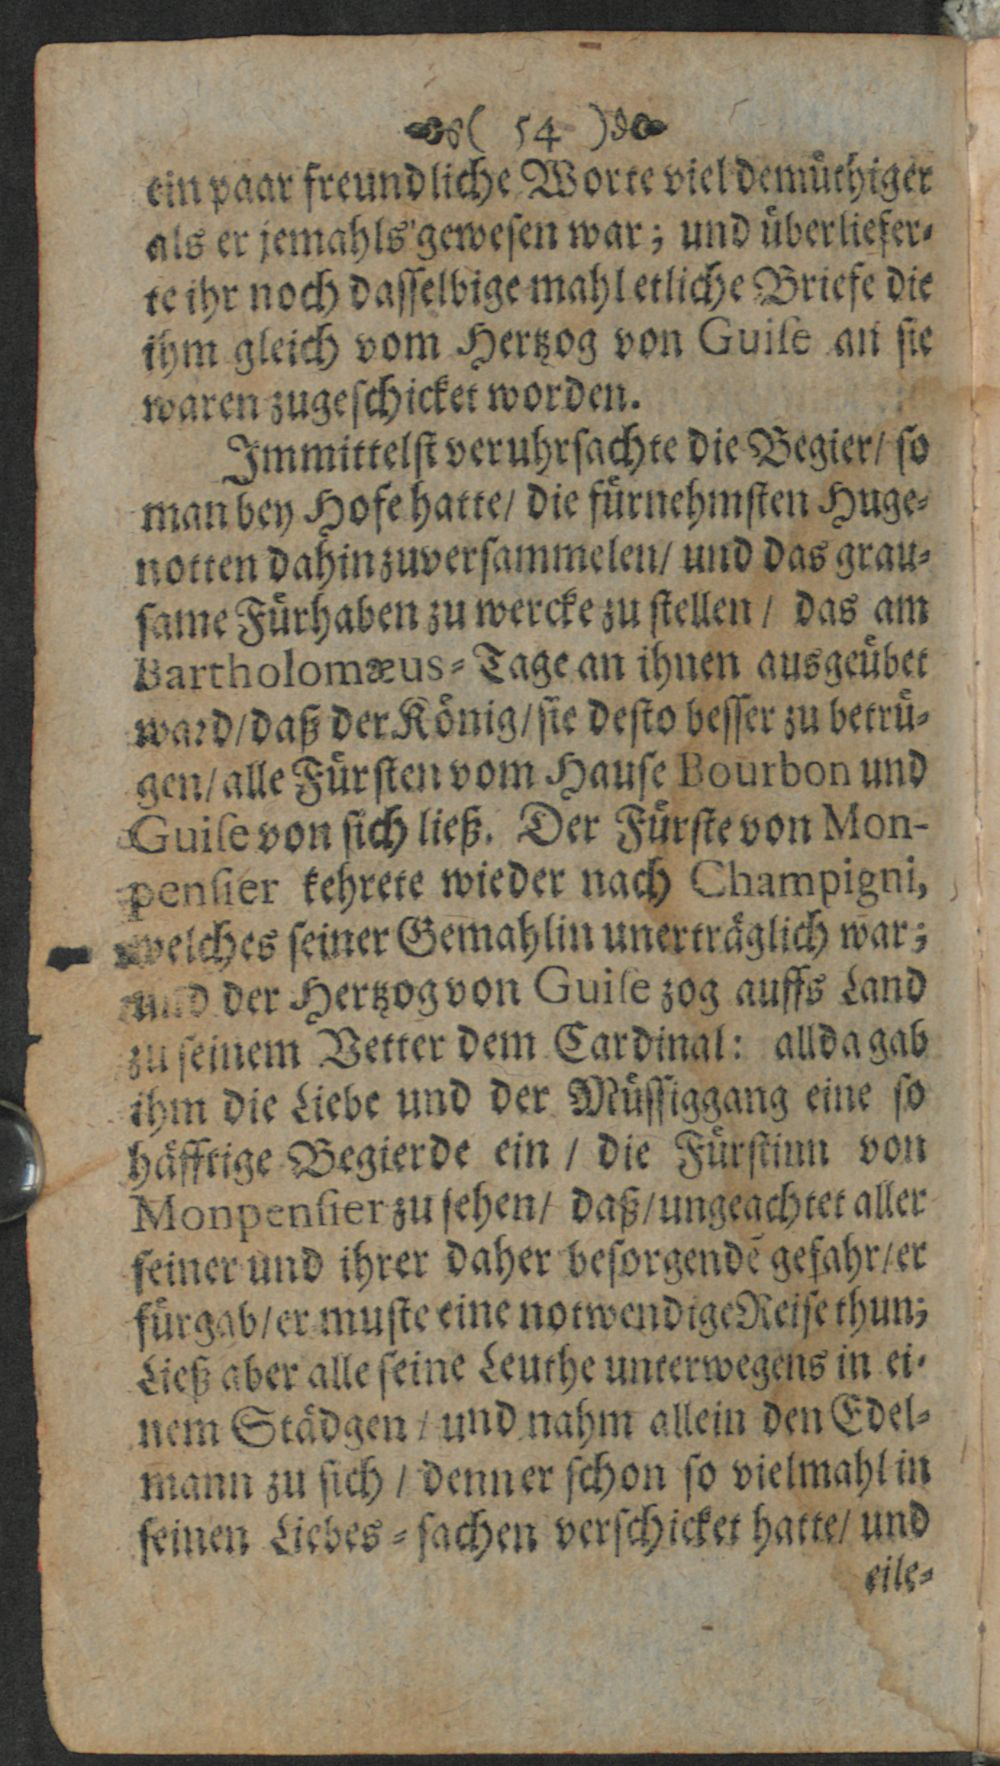 ( 54 )
ein paar freundliche Worte viel demüthiger
als er jemahls gewesen war; und überliefer-
te ihr noch dasselbige mahl etliche Briefe die
ihm gleich vom Hertzog von Guise an sie
waren zugeschicket worden.
Immittelst veruhrsachte die Begier/ so
man bey Hofe hatte/ die fürnehmsten Huge-
notten dahin zuversammelen/ und das grau-
same Fürhaben zu wercke zu stellen / das am
Bartholomæus-Tage an ihnen ausgeübet
ward/ daß der König/ sie desto besser zu betrü-
gen/ alle Fürsten vom Hause Bourbon und
Guise von sich ließ. Der Fürste von Mon-
pensier kehrete wieder nach Champigni,
welches seiner Gemahlin unerträglich war;
und der Hertzog von Guise zog auffs Land
zu seinem Vetter dem Cardinal: allda gab
ihm die Liebe und der Müssiggang eine so
häfftige Begierde ein / die Fürstinn von
Monpensier zu sehen/ daß/ ungeachtet aller
seiner und ihrer daher besorgendē gefahr/ er
fürgab/ er muste eine notwendige Reise thun;
Ließ aber alle seine Leuthe unterwegens in ei-
nem Städgen / und nahm allein den Edel-
mann zu sich / denn er schon so vielmahl in
seinen Liebes-sachen verschicket hatte/ und
eile-